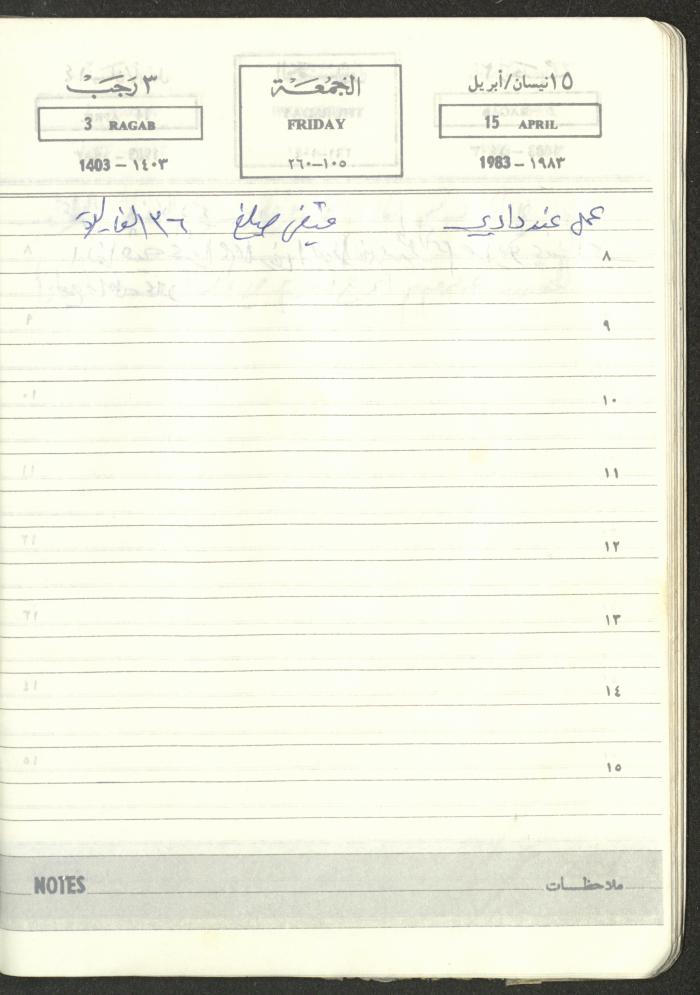 ١٥ نيسان/أبريل الجُمْعَة ٣ رَجَبْ
15 APRIL FRIDAY 3 RAGAB
1983 – ١٩٨٣ ٢٦٠–١٠٥ 1403 – ١٤٠٣
عمل عند دادي مبلغ ٣٦ الف ليرة
٨
٩
١٠
١١
١٢
١٣
١٤
١٥
NOTES ملاحظات